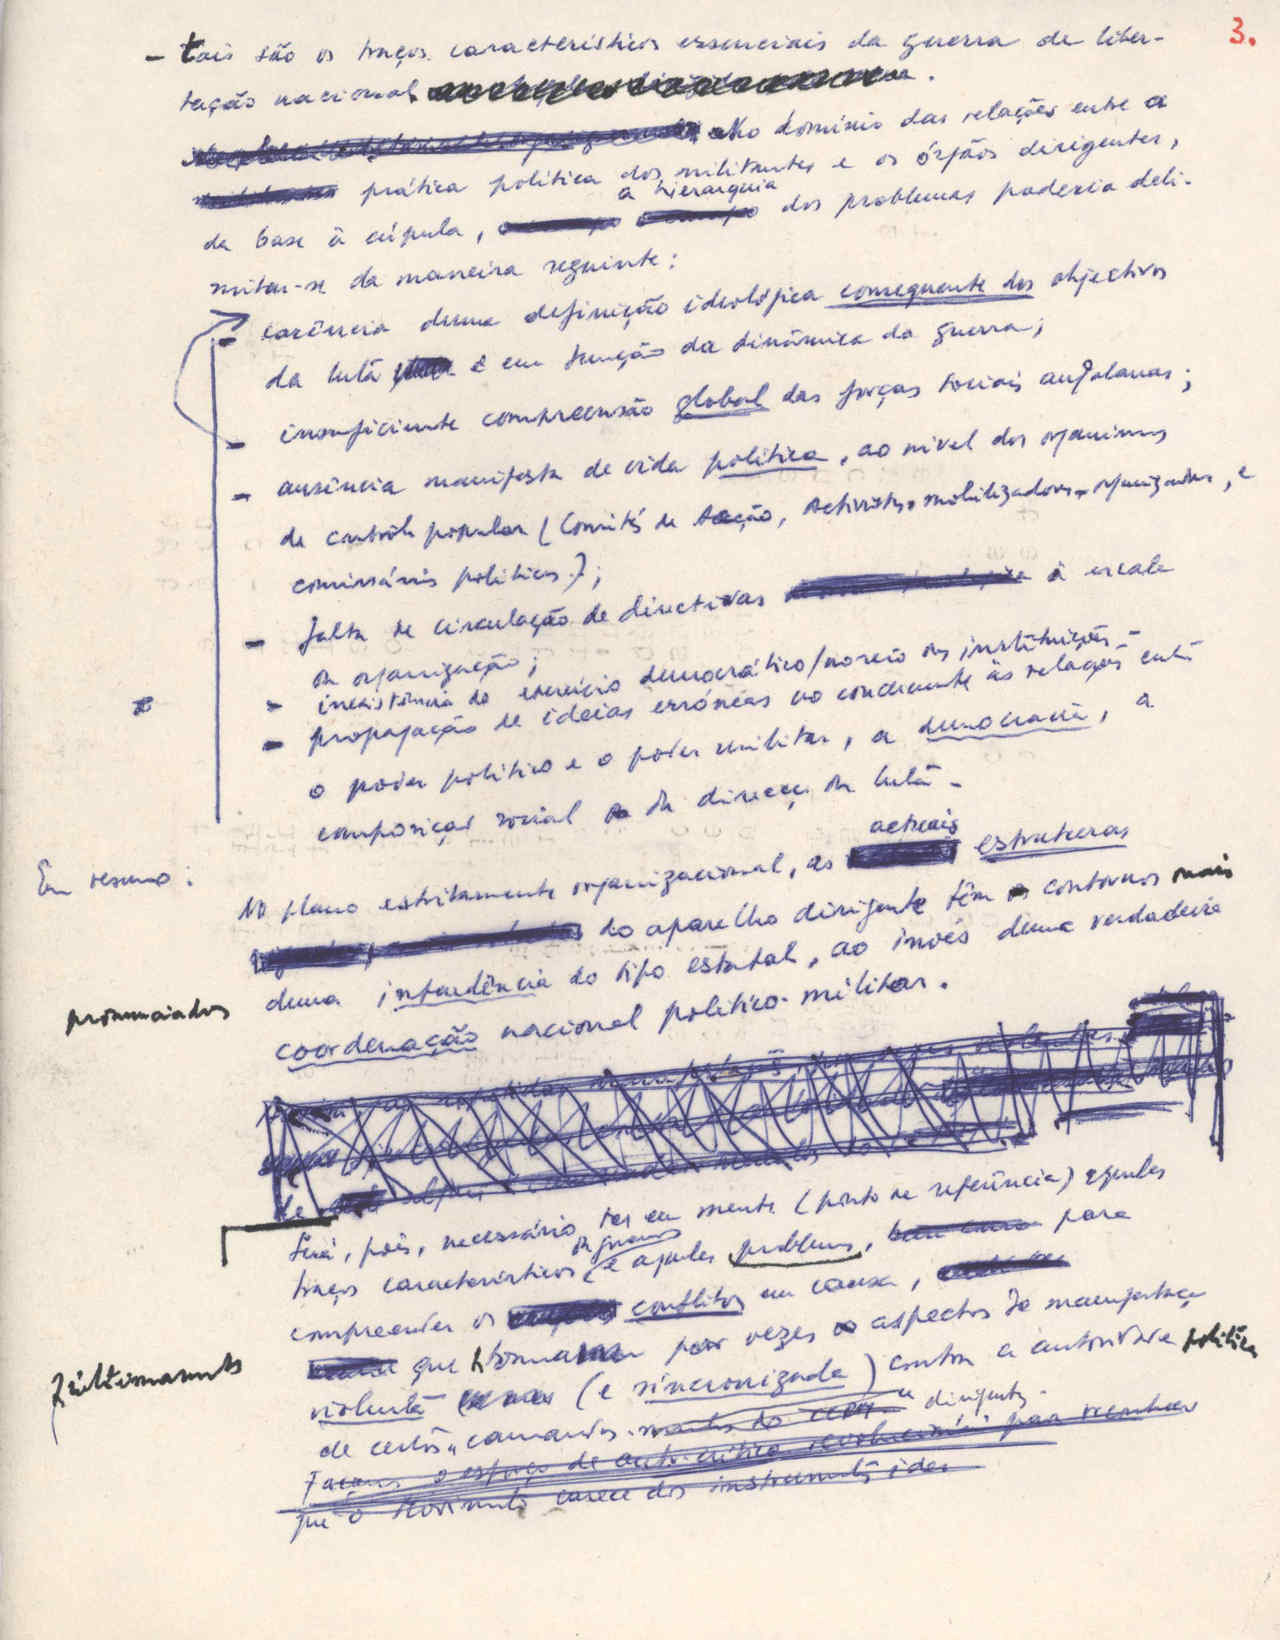 3.
- tais são os traços característicos essenciais da guerra de liber-
tação nacional.
No domínio das relações entre a
prática política dos militantes e os órgãos dirigentes,
da base à cúpula, a hierarquia dos problemas poderia deli-
mitar-se da maneira seguinte:
- carência duma definição ideológica consequente dos objectivos
da luta e em função da dinâmica da guerra;
- insuficiente compreensão global das forças sociais angolanas;
- ausência manifesta de vida política, ao nível dos organismos
de contrôle popular (Comités de Acção, Activistas, mobilizadores, organizadores, e
comissários políticos);
- falta de circulação de directivas à escala
da organização;
- inexistência do exercício democrático no seio das instituições
- propagação de ideias erróneas no concernente às relações entre
o poder político e o poder militar, a democracia, a
composição social da direcção da luta -
Em resumo:
No plano estritamente organizacional, as actuais estruturas
do aparelho dirigente têm contornos mais
pronunciados
duma intendência do tipo estatal, ao invés duma verdadeira
coordenação nacional político-militar.
Será, pois, necessário ter em mente (ponto de referência) aqueles
traços característicos da guerra e aqueles problemas, para
compreender os conflitos em causa,
que tomam por vezes aspectos de manifestação
violenta (e sincronizada) contra a autoridade política
de certos "camaradas dirigentes".
Façamos o esforço de autocrítica revolucionária para reconhecer
que o Movimento carece dos instrumentos